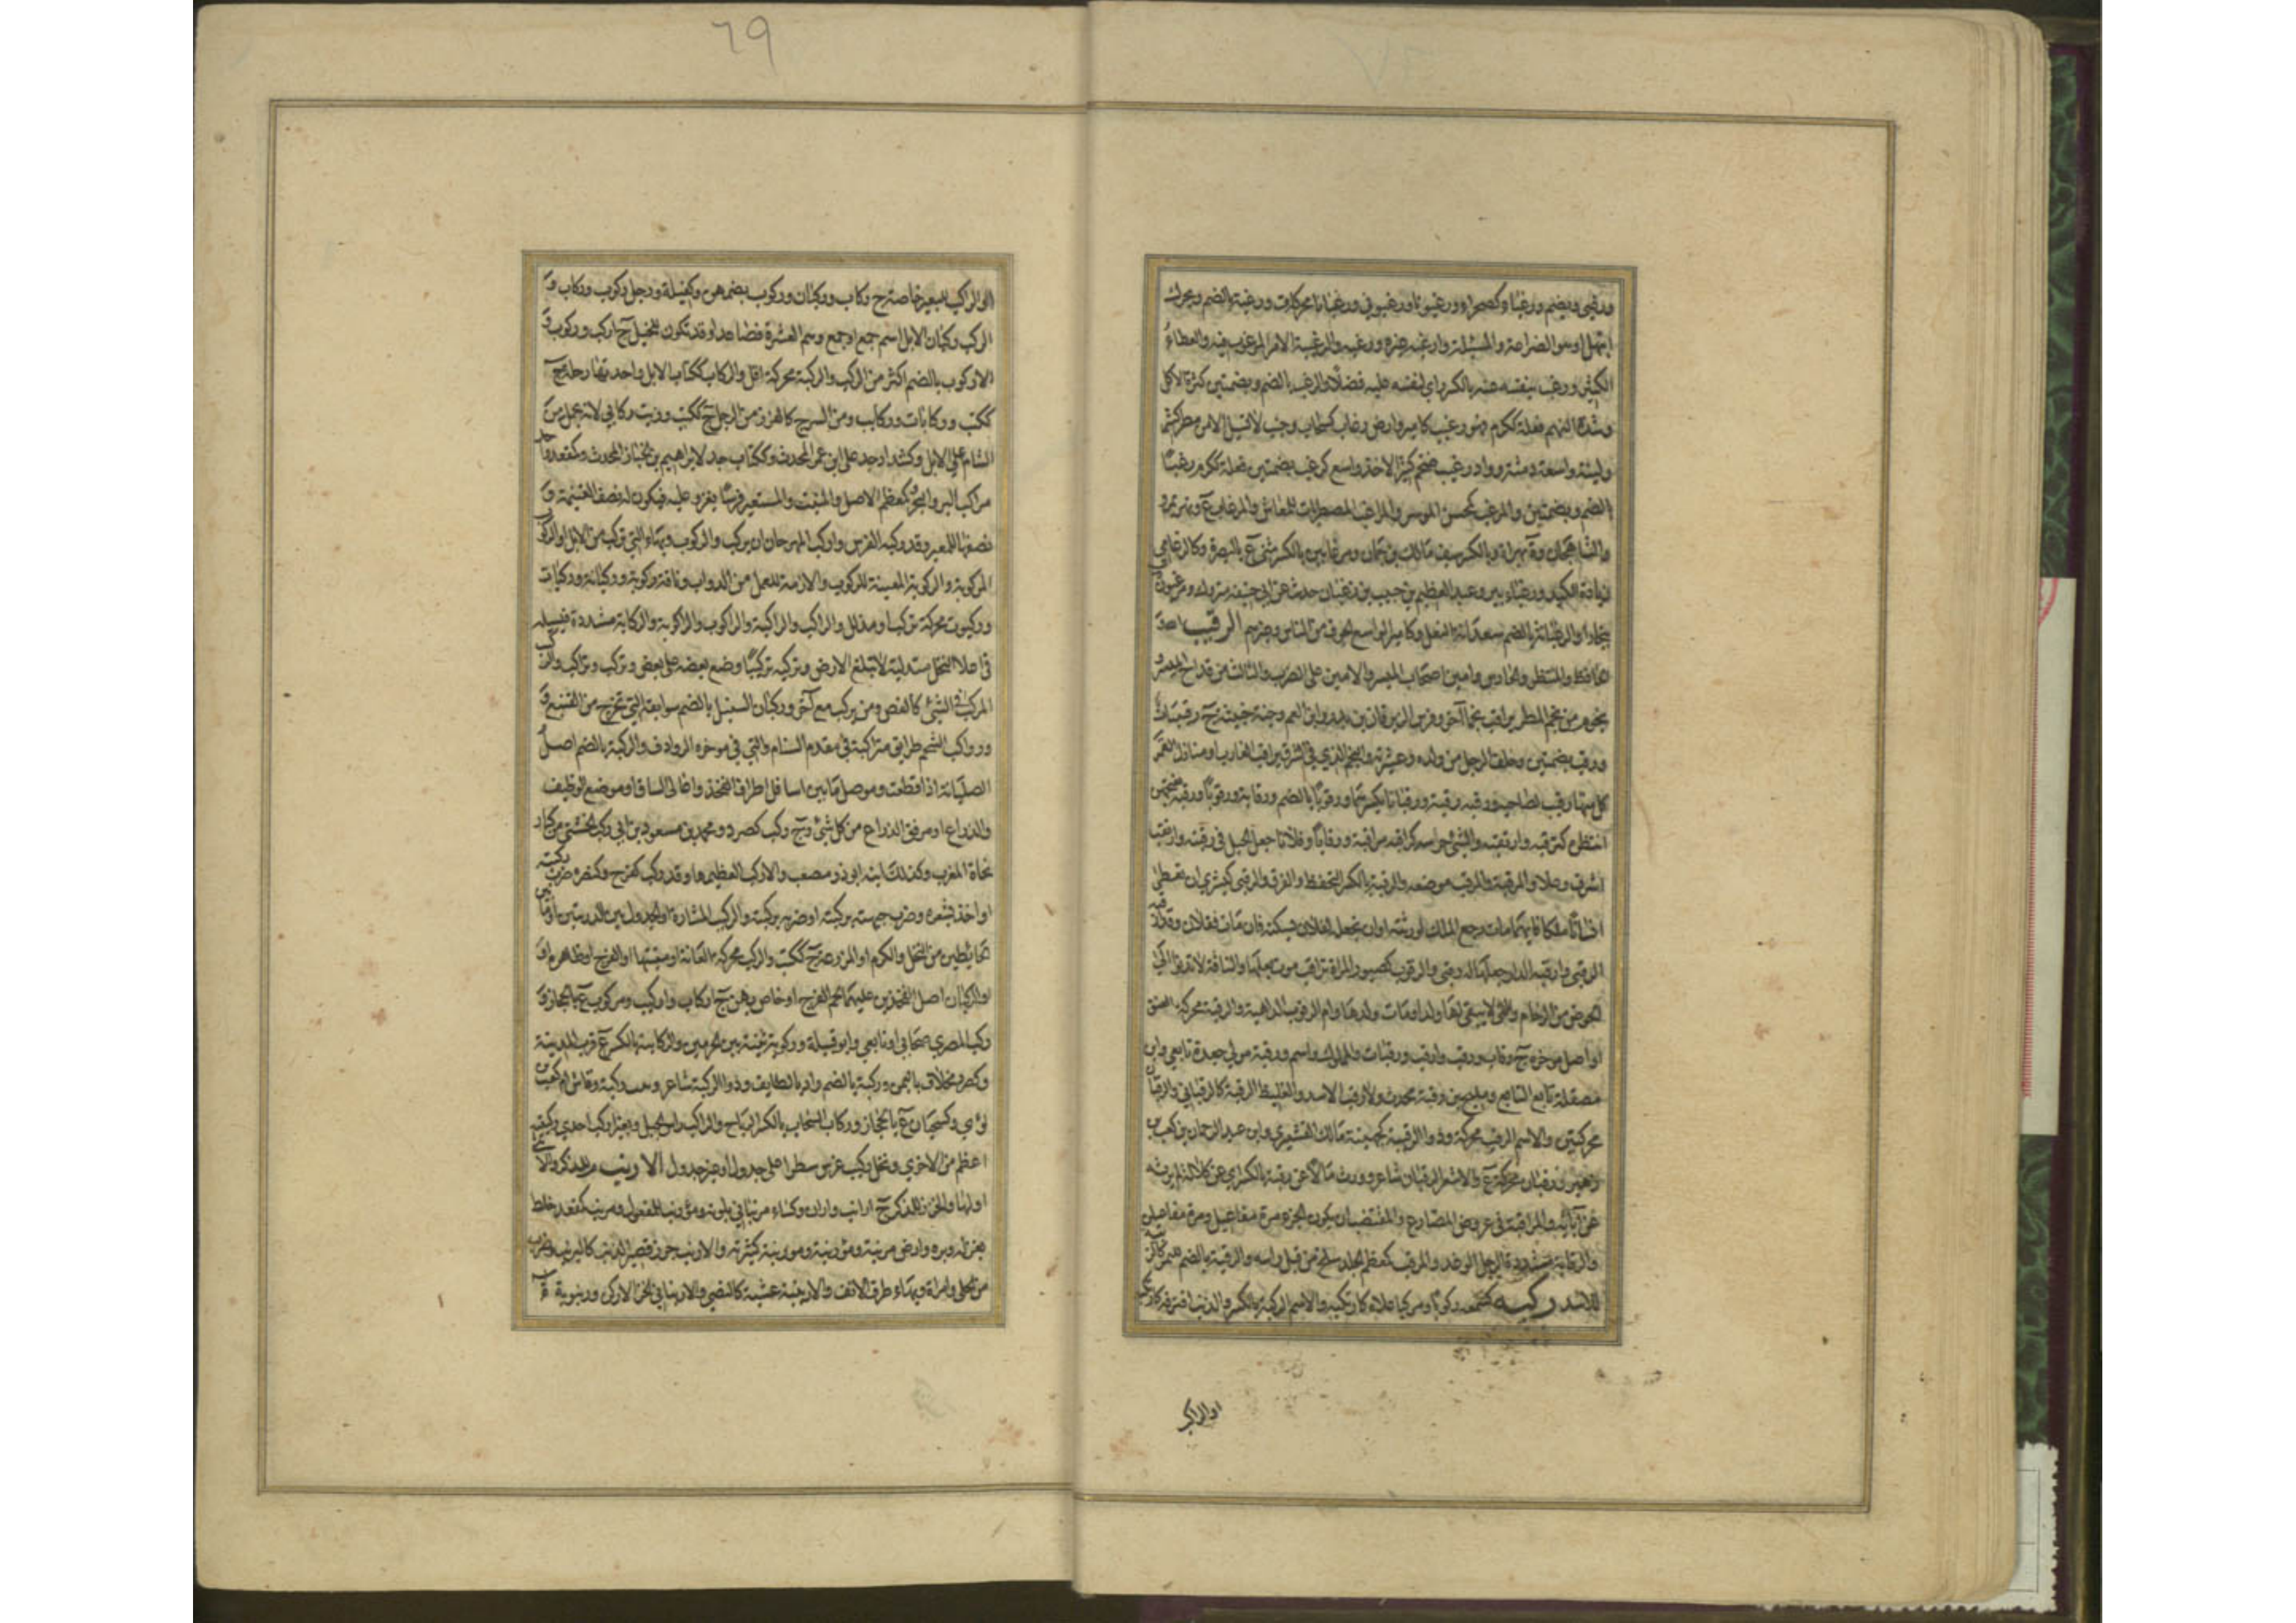 ورغبى ويضم ورغباء كصحراء ورغبوتا ورغبوتى ورغبانا محركات ورغبة بالضم ويحرك
ابتهل او هو الضراعة والمسئلة وارغبه غيره ورغبه والرغيبة الامر المرغوب فيه والعطاء
الكثير ورغب بنفسه عنه بالكسر اى لنفسه عليه فضلا والرغب بالضم وبضمتين كثرة الاكل
وشدة النهم فعله ككرم فهو رغيب كامير وارض رغاب كسحاب وجنب لا تسيل الا من مطر كثير
ولينة واسعة دمثة وواد رغيب ضخم كثير الاخذ واسع كرغب بضمتين فعله ككرم رغبا
بالضم وبضمتين والمرغب كمحسن الموسر والمراغب المضطربات للمعاش والمرغاب ع ونهر بمرو
الشاهجان وة بهراة وبالكسر سيف مالك بن جمان ومرغابين بالكسر مثنى ع بالبصرة وكالرغامى
زيادة الكبد ورغباء بير وعبد العظيم بن حبيب بن رغبان حدث عن ابى حنيفة متروك ومرغبون ة
ببخارا والرغبانة بالضم سعدانة النعل وكامير الواسع الجوف من الناس وغيرهم الرقيب
الحافظ والمنتظر والحارس وامين اصحاب الميسر او الامين على الضريب والثالث من قداح الميسر
نجوم من نجوم المطر يراقب نجما آخر وفرس الزبرقان بن بدر وابن العم وحية خبيثة ج رقيبات
ورقب بضمتين وخلف الرجل من ولده وعشيرته والنجم الذي في المشرق يراقب الغارب او منازل القمر
كل منها رقيب لصاحبه ورقبه رقبة ورقبانا بكسرهما ورقوبا بالضم ورقابة ورقوبا ورقبة بفتحهن
انتظره كترقبه وارتقبه والشئ حرسه كراقبه مراقبة ورقابا وفلانا جعل الحبل في رقبته وارتقب
اشرف وعلا والمرقبة والمرقب موضعه والرقبة بالكسر التحفظ والفرق والرقبى كبشرى ان تعطى
انسانا ملكا فايهما مات رجع الملك لورثته او ان يجعله لفلان يسكنه فان مات ففلان وقد ارقبه
الرقبى وارقبه الدار جعلها له رقبى والرقوب كصبور المراة تراقب موت بعلها والناقة لا تدنو الى
الحوض من الزحام والتى لا يبقى لها ولد او مات ولدها وام الرقوب الداهية والرقبة محركة العنق
او اصل موخره ج رقاب ورقب وارقب ورقبات والمملوك واسم ورقبة مولى جعدة تابعى وابن
مصقلة تابع التابع ومليح بن رقبة محدث والارقب الاسد والغليظ الرقبة كالرقبانى والرقبان
محركتين والاسم الرقب محركة وذو الرقيبة كجهينة مالك القشيرى وابن عبد الرحمان بن كعب بن
زهير ورقبان محركة ع والاشعر الرقبان شاعر وورث مالا عن رقبة بالكسر اى عن كلالة لم يرثه
عن آبائه والمراقبة في عروض المضارع والمقتضب ان يكون الجزء مرة مفاعيل ومرة مفاعيلن
والرقابة مشددة الرجل الوغد والمرقب كمعظم الجلد سلخ من قبل راسه والرقبة بالضم للنمر كالزبية
للاسد ركبه كسمعه ركوبا ومركبا علاه كارتكبه والاسم الركبة بالكسر والذنب اقترفه كارتكبه
او الراكب
79
او الراكب للبعير خاصة ج ركاب وركبان وركوب بضمهن وكفيلة ورجل ركوب وركاب و
الركب ركبان الابل اسم جمع او جمع وهم العشرة فصاعدا وقد تكون للخيل ج اركب وركوب و
الاركوب بالضم اكثر من الركب والركبة محركة اقل والركاب ككتاب الابل واحدتها راحلة ج
ككتب وركابات وركايب ومن السرج كالغرز من الرحل ج ككتب وزيت ركابى لانه يحمل من
الشام على الابل وكشداد جد على ابن عمر المحدث وككتاب جد لابراهيم بن الخباز المحدث وكمقعد واحد
مراكب البر والبحر وكمعظم الاصل والمنبت والمستعير فرسا يغزو عليه فيكون له نصف الغنيمة و
نصفها للمعير وقد ركبه الفرس واركب المهر حان ان يركب والركوب وبهاء التى تركب من الابل او الركوب
المركوبة والركوبة المعينة للركوب واللازمة للعمل من الدواب وناقة ركوبة وركبانة وركباة
وركبوت محركة تركب او مذلل والراكب والراكبة والراكوب والراكوبة والركابة مشددة فسيلة
في اعلا النخل متدلية لا تبلغ الارض وركبه تركيبا وضع بعضه على بعض فتركب وتراكب والركيب
المركب في الشئ كالفص ومن يركب مع آخر وركبان السنبل بالضم سوابقه التى تخرج من القنبع
ورواكب الشحم طرايق متراكبة في مقدم السنام والتى في موخره الروادف والركبة بالضم اصل
الصليانة اذا قطعت وموصل ما بين اسافل اطراف الفخذ واعالى الساق او موضع الوظيف
والذراع او مرفق الذراع من كل شئ ج ركب كصرد ومحمد بن مسعود بن ابى ركب الخشنى من كبار
نحاة المغرب وكذلك ابنه ابو ذر مصعب والاركب العظيمها وقد ركب كفرح وكنصره ضرب ركبته
او اخذ بشعره وضرب جبهته بركبته او ضربه بركبته والركيب المشارة او الجدول بين الدبرتين او ما بين
الحايطين من النخل والكرم او المزرعة ج ككتب والركب محركة العانة او منبتها او الفرج او ظاهره او
او الركبان اصل الفخذين عليهما لحم الفرج او خاص بهن ج اركاب واراكيب ومركوب ع بالحجاز و
ركب المصرى صحابى او تابعى وابو قبيلة وركوبة ثنية بين الحرمين والركابية بالكسر ع قرب المدينة
وكصرد مخلاف باليمن وركبة بالضم واد بالطايف وذو الركبة شاعر وبنت ركبة رقاش ام كعب بن
لوى وكسحبان ع بالحجاز وركاب السحاب بالكسر الرياح والراكب راس الجبل وبعير اركب احدى ركبتيه
اعظم من الاخرى ونخل ركيب غرس سطرا على جدول او غير جدول الارنب م للذكر والانثى
او للانثى والخزز للذكر ج ارانب واران وكساء مرنبانى بلونه ومؤرنب للمفعول ومرنب كمقعد خلط
بغزله وبره وارض مرنبة ومؤرنبة ومورنبة كثيرته والارنب جرذ قصير الذنب كاليرنب وضرب
من الحلى وامراة وبهاء طرف الانف والارينبة عشبة كالنصى والارنبانى الخز الادكن ورنبوية ة